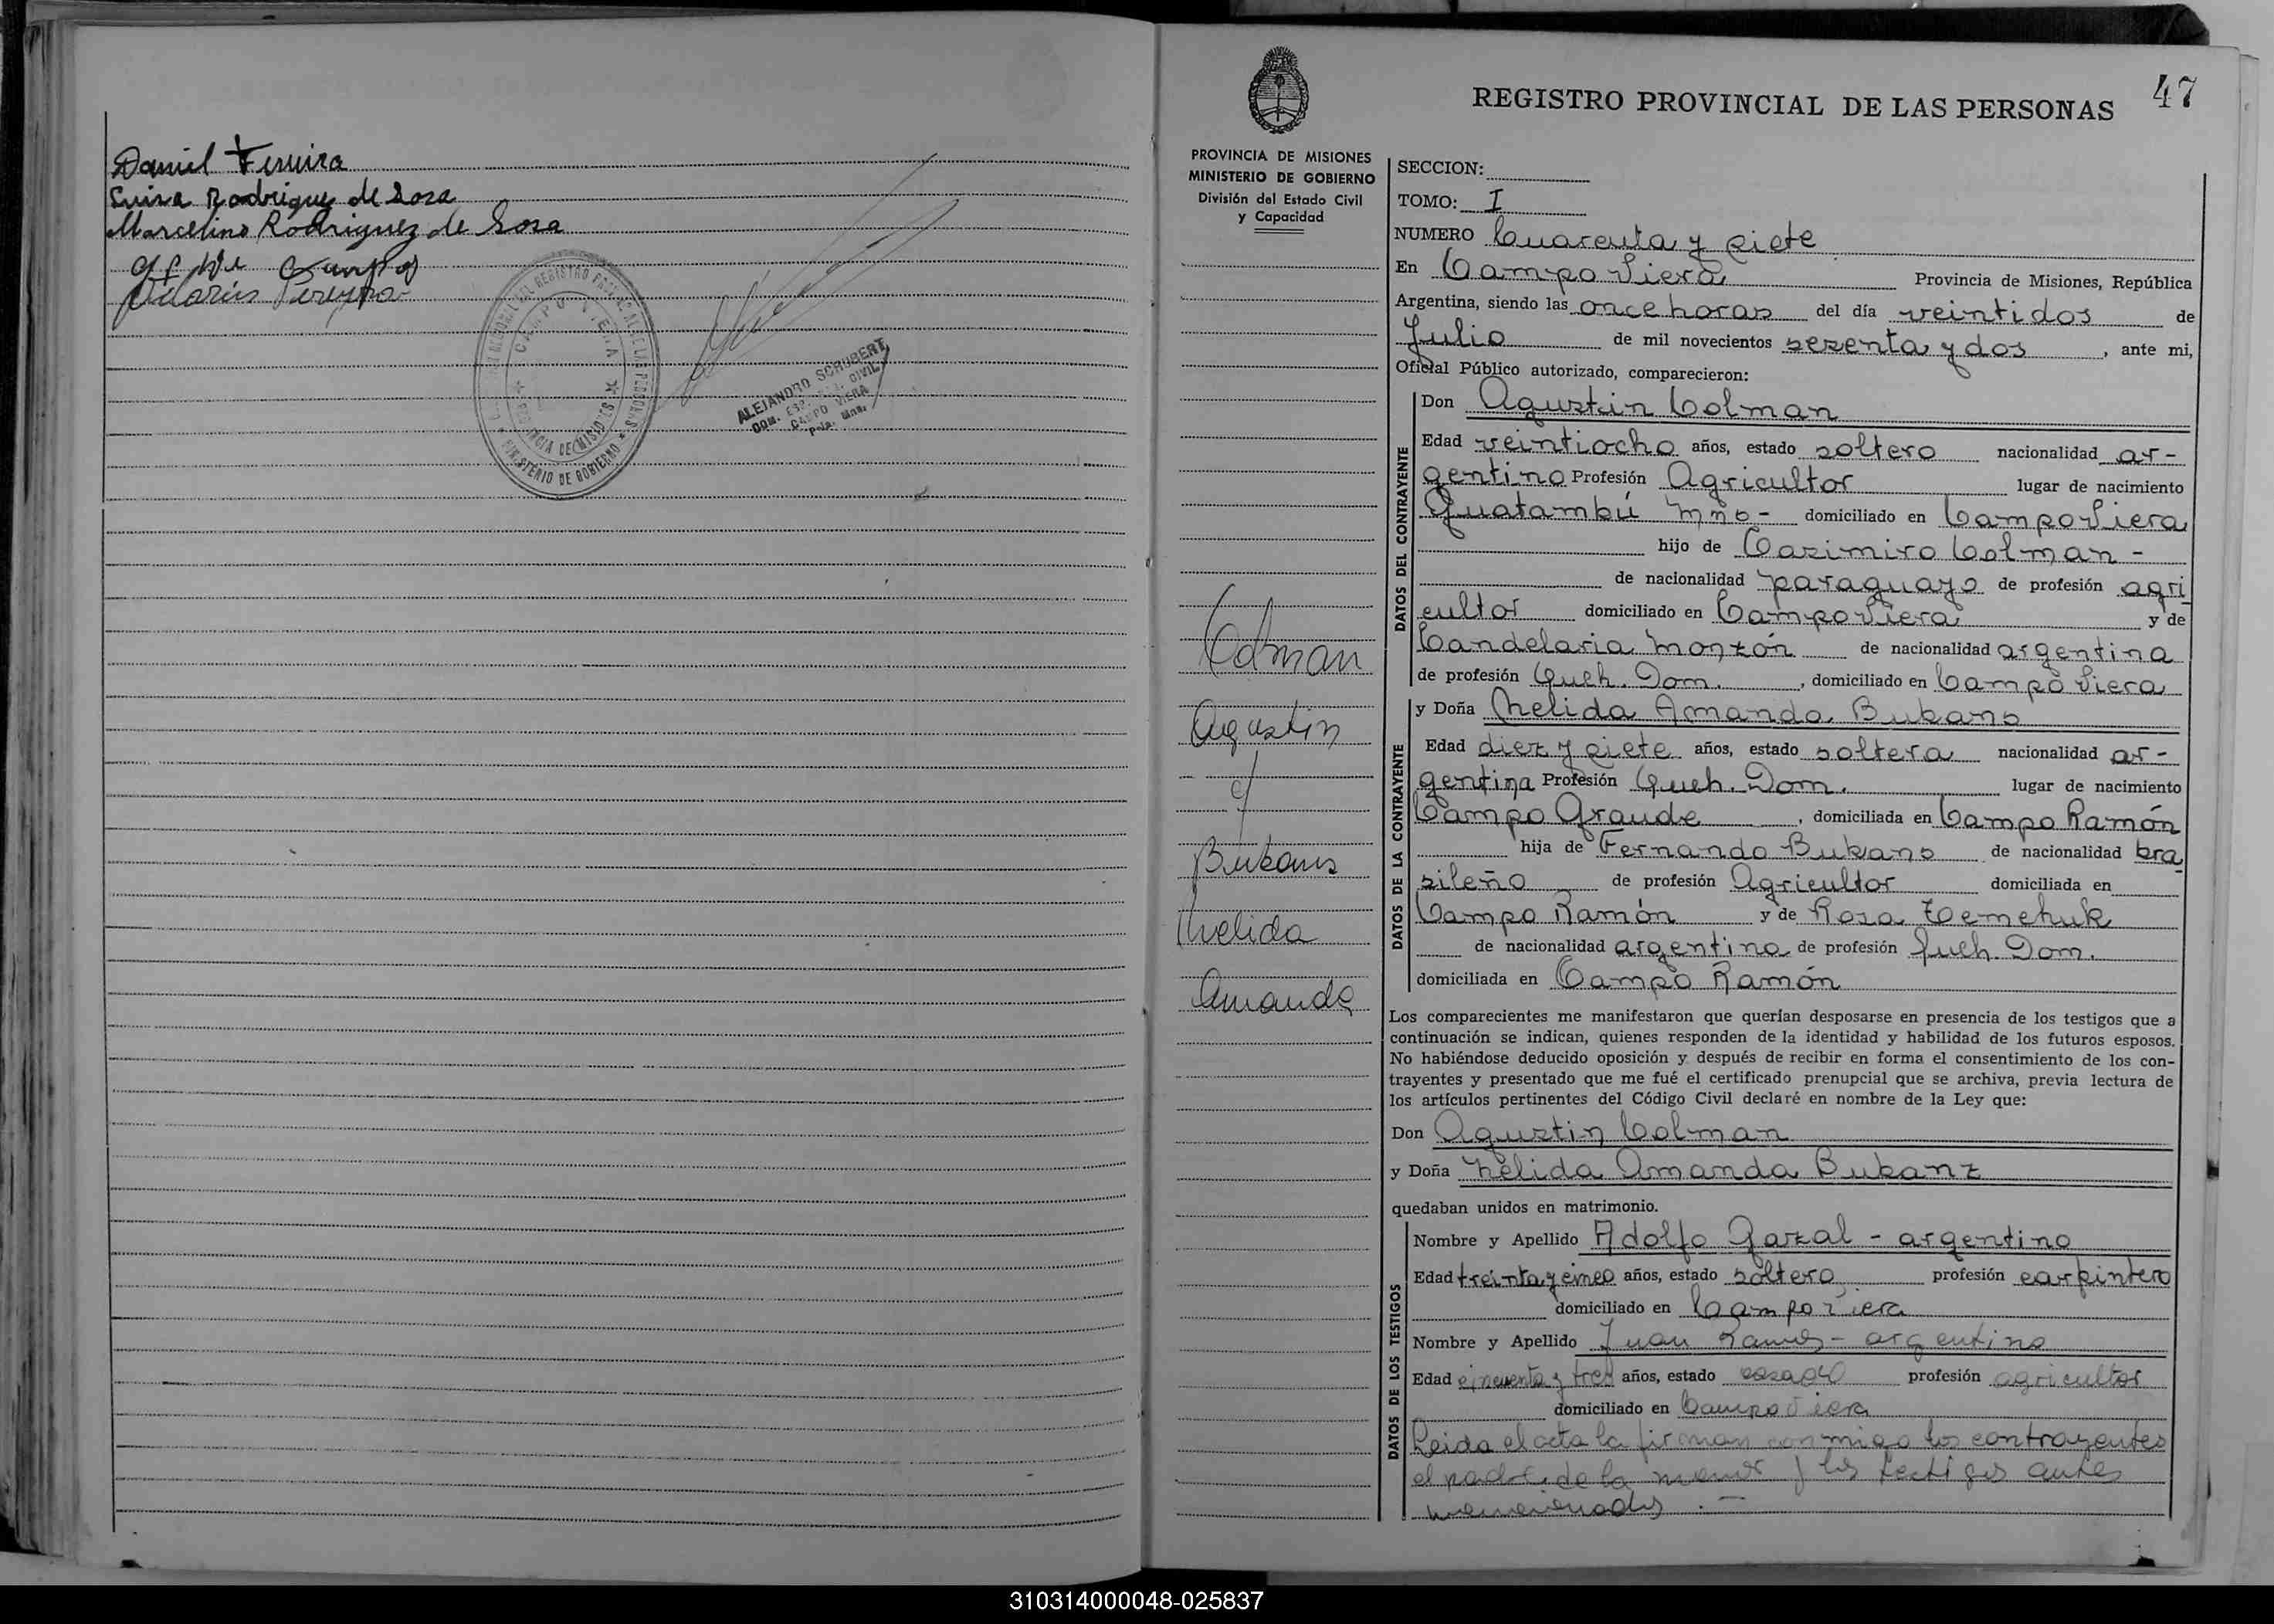 Daniel Ferreira
Luisa Rodriguez de Sosa
Marcelino Rodriguez de Sosa
Pereyra
CAMPO VIERA
PROVINCIA DE MISIONES
MINISTERIO DE GOBIERNO
ALEJANDRO SCHUBERT
CAMPO VIERA
Pcia. Mnes.
47
REGISTRO PROVINCIAL DE LAS PERSONAS
PROVINCIA DE MISIONES
MINISTERIO DE GOBIERNO
División del Estado Civil
y Capacidad
Colman
Agustin
y
Bukans
Nelida
Amanda
SECCION:
TOMO: I
NUMERO Cuarenta y siete
En Campo Viera Provincia de Misiones, República
Argentina, siendo las once horas del día veintidos de
Julio de mil novecientos sesenta y dos, ante mi,
Oficial Público autorizado, comparecieron:
DATOS DEL CONTRAYENTE
Don Agustin Colman
Edad veintiocho años, estado soltero nacionalidad ar-
gentino Profesión Agricultor lugar de nacimiento
Guatambú Mnes- domiciliado en Campo Viera
hijo de Casimiro Colman -
de nacionalidad paraguayo de profesión agri
cultor domiciliado en Campo Viera y de
Candelaria Monzón de nacionalidad argentina
de profesión Queh. Dom. , domiciliado en Campo Viera
DATOS DE LA CONTRAYENTE
y Doña Nelida Amanda Bukans
Edad diez y siete años, estado soltera nacionalidad ar-
gentina Profesión Queh. Dom. lugar de nacimiento
Campo Grande , domiciliada en Campo Ramón
hija de Fernando Bukans de nacionalidad bra
sileño de profesión Agricultor domiciliada en
Campo Ramón y de Rosa Zemchuk
de nacionalidad argentina de profesión Queh. Dom.
domiciliada en Campo Ramón
Los comparecientes me manifestaron que querían desposarse en presencia de los testigos que a
continuación se indican, quienes responden de la identidad y habilidad de los futuros esposos.
No habiéndose deducido oposición y después de recibir en forma el consentimiento de los con-
trayentes y presentado que me fué el certificado prenupcial que se archiva, previa lectura de
los artículos pertinentes del Código Civil declaré en nombre de la Ley que:
Don Agustin Colman
y Doña Nélida Amanda Bukanz
quedaban unidos en matrimonio.
DATOS DE LOS TESTIGOS
Nombre y Apellido Adolfo Garzal - argentino
Edad treinta y cinco años, estado soltero profesión carpintero
domiciliado en Campo Viera
Nombre y Apellido Juan Ramos - argentino
Edad cincuenta y tres años, estado casado profesión agricultor
domiciliado en Campo Viera
Leida el acta la firman conmigo los contrayentes
el padre de la menor y los testigos antes
mencionados.-
310314000048-025837